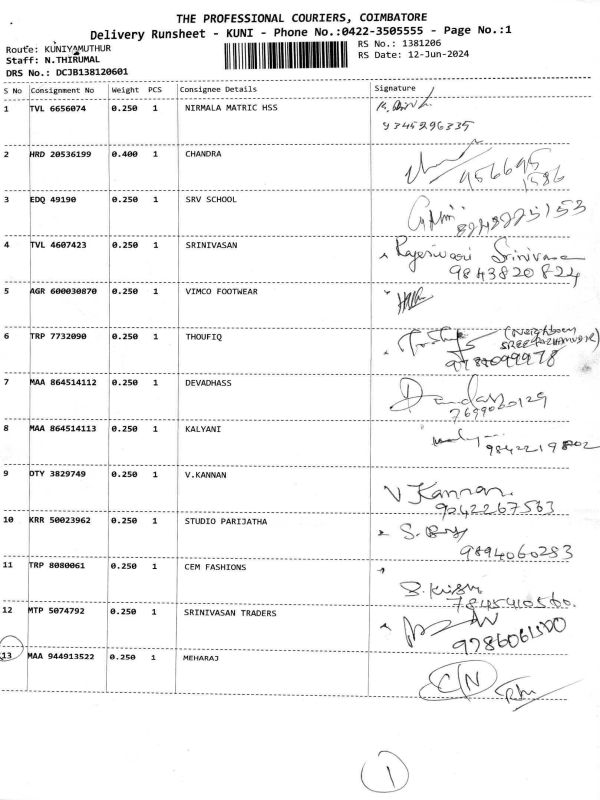 THE PROFESSIONAL COURIERS, COIMBATORE
Delivery Runsheet - KUNI - Phone No.:0422-3505555 - Page No.:1
Route: KUNIYAMUTHUR
RS No.: 1381206
Staff: N.THIRUMAL
RS Date: 12-Jun-2024
DRS No.: DCJB138120601
S No Consignment No Weight PCS Consignee Details Signature
1 TVL 6656074 0.250 1 NIRMALA MATRIC HSS
9345296335
2 HRD 20536199 0.400 1 CHANDRA
956695
1586
3 EDQ 49190 0.250 1 SRV SCHOOL
4 TVL 4607423 0.250 1 SRINIVASAN Rajeswari Srinivasa
9843820824
5 AGR 600030870 0.250 1 VIMCO FOOTWEAR
6 TRP 7732090 0.250 1 THOUFIQ
7 MAA 864514112 0.250 1 DEVADHASS
8 MAA 864514113 0.250 1 KALYANI
9842219802
9 DTY 3829749 0.250 1 V.KANNAN V Kannan
9242267563
10 KRR 50023962 0.250 1 STUDIO PARIJATHA
9894060283
11 TRP 8080061 0.250 1 CEM FASHIONS
7845910560.
12 MTP 5074792 0.250 1 SRINIVASAN TRADERS
13 MAA 944913522 0.250 1 MEHARAJ C/N
1